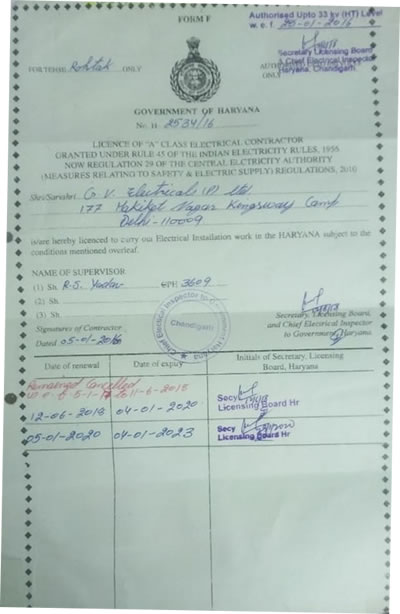 FORM F
Authorised Upto 33 kv (HT) Level
w. e. f. 25-01-2016
Secretary Licensing Board
& Chief Electrical Inspector
Haryana, Chandigarh.
FOR Rohtak ONLY
ONLY
GOVERNMENT OF HARYANA
No. H 2534/16
LICENCE OF "A" CLASS ELECTRICAL CONTRACTOR
GRANTED UNDER RULE 45 OF THE INDIAN ELECTRICITY RULES, 1956
NOW REGULATION 29 OF THE CENTRAL ELECTRICITY AUTHORITY
(MEASURES RELATING TO SAFETY & ELECTRIC SUPPLY) REGULATIONS, 2010
Shri/Sarvshri. G. V. Electricals (P) Ltd
177 Hakikat Nagar Kingsway Camp
Delhi-110009
is/are hereby licenced to carry out Electrical Installation work in the HARYANA subject to the
conditions mentioned overleaf.
NAME OF SUPERVISOR
(1) Sh. R.S. Yadav PH 3609
(2) Sh.
(3) Sh.
Signatures of Contractor
Dated 05-01-2016
Chief Electrical Inspector to Haryana
Chandigarh
Secretary, Licensing Board,
and Chief Electrical Inspector
to Government, Haryana
Date of renewal Date of expiry Initials of Secretary, Licensing
Board, Haryana
Remained Cancelled
w.e.f. 5-1-
12-06-2018 04-01-2020 Secy
Licensing Board Hr
05-01-2020 04-01-2023 Secy
Licensing Board Hr